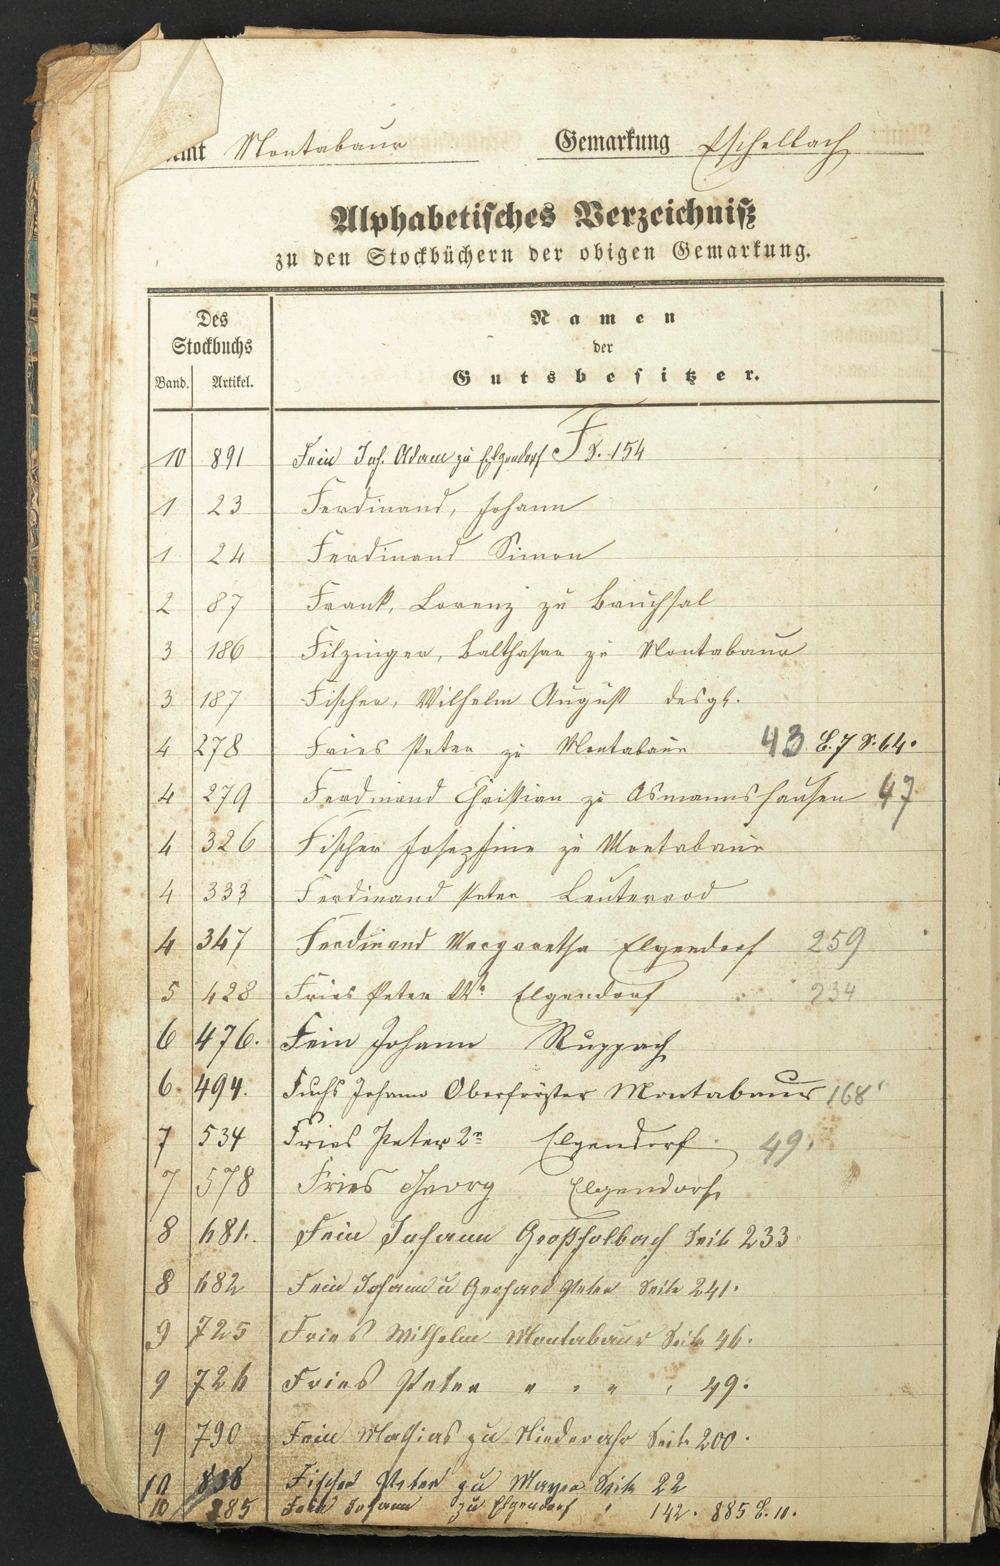 Amt Montabaur Gemarkung Eschelbach
Alphabetisches Verzeichniß
zu den Stockbüchern der obigen Gemarkung.
Des Stockbuchs
Band. Artikel.
Namen
der
Gutsbesitzer.
F
10 891 Fein Joh. Adam zu Elgendorf S. 154
1 23 Ferdinand, Johann
1 24 Ferdinand Simon
2 87 Frank, Lorenz zu Bruchsal
3 186 Filzinger, Balthasar zu Montabaur
3 187 Fischer, Wilhelm August desgl.
4 278 Fries Peter zu Montabaur 43 B. 7 S. 64.
4 279 Ferdinand Christian zu Asmannshausen 47
4 326 Fischer Josephine zu Montabaur
4 333 Ferdinand Peter Leuterrod
4 347 Ferdinand Margaretha Elgendorf 259
5 428 Fries Peter Elgendorf 234
6 476. Fein Johann Ruppach
6. 494. Fuchs Johann Oberförster Montabaur 168
7 534 Fries Peter 2r Elgendorf 49.
7 578 Fries Georg Elgendorf
8 681. Fein Johann Großholbach Seite 233
8 682 Fein Johann u Gerhard Peter Seite 241.
9 725 Fries Wilhelm Montabaur Seite 46.
9 726 Fries Peter " " " " 49.
9 790 Fein Mathias zu Niederahr Seite 200.
10 838 Fischer Peter zu Seite 22
10 885 Fein Johann zu Elgendorf " 142. 885 B. 10.